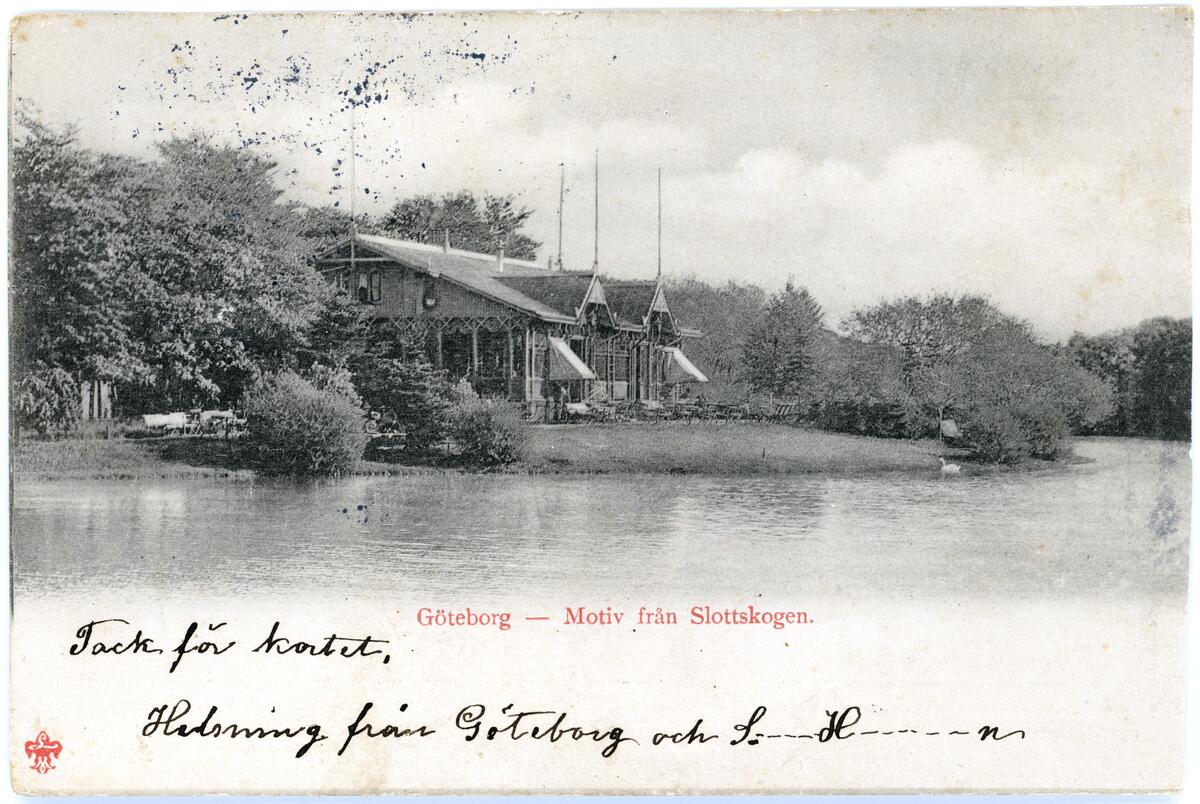 Göteborg — Motiv från Slottskogen.
Tack för kortet,
Helsning från Göteborg och S:---H-----n